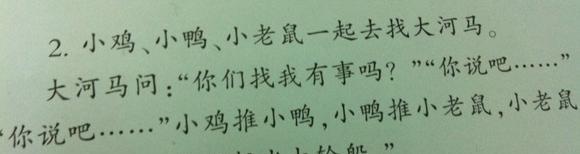 2. 小鸡、小鸭、小老鼠一起去找大河马。
大河马问:“你们找我有事吗?”“你说吧……”
“你说吧……”小鸡推小鸭,小鸭推小老鼠,小老鼠